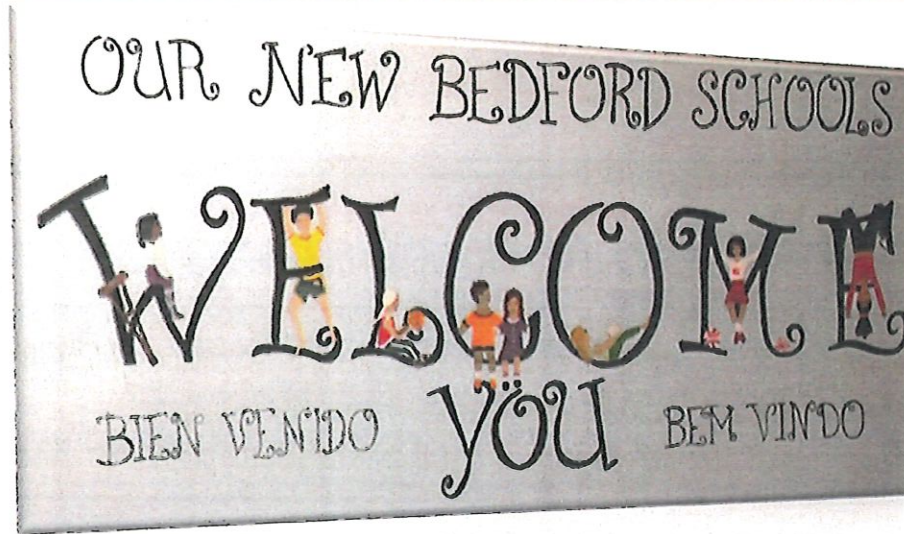 OUR NEW BEDFORD SCHOOLS
WELCOME
BIEN VENIDO YOU BEM VINDO